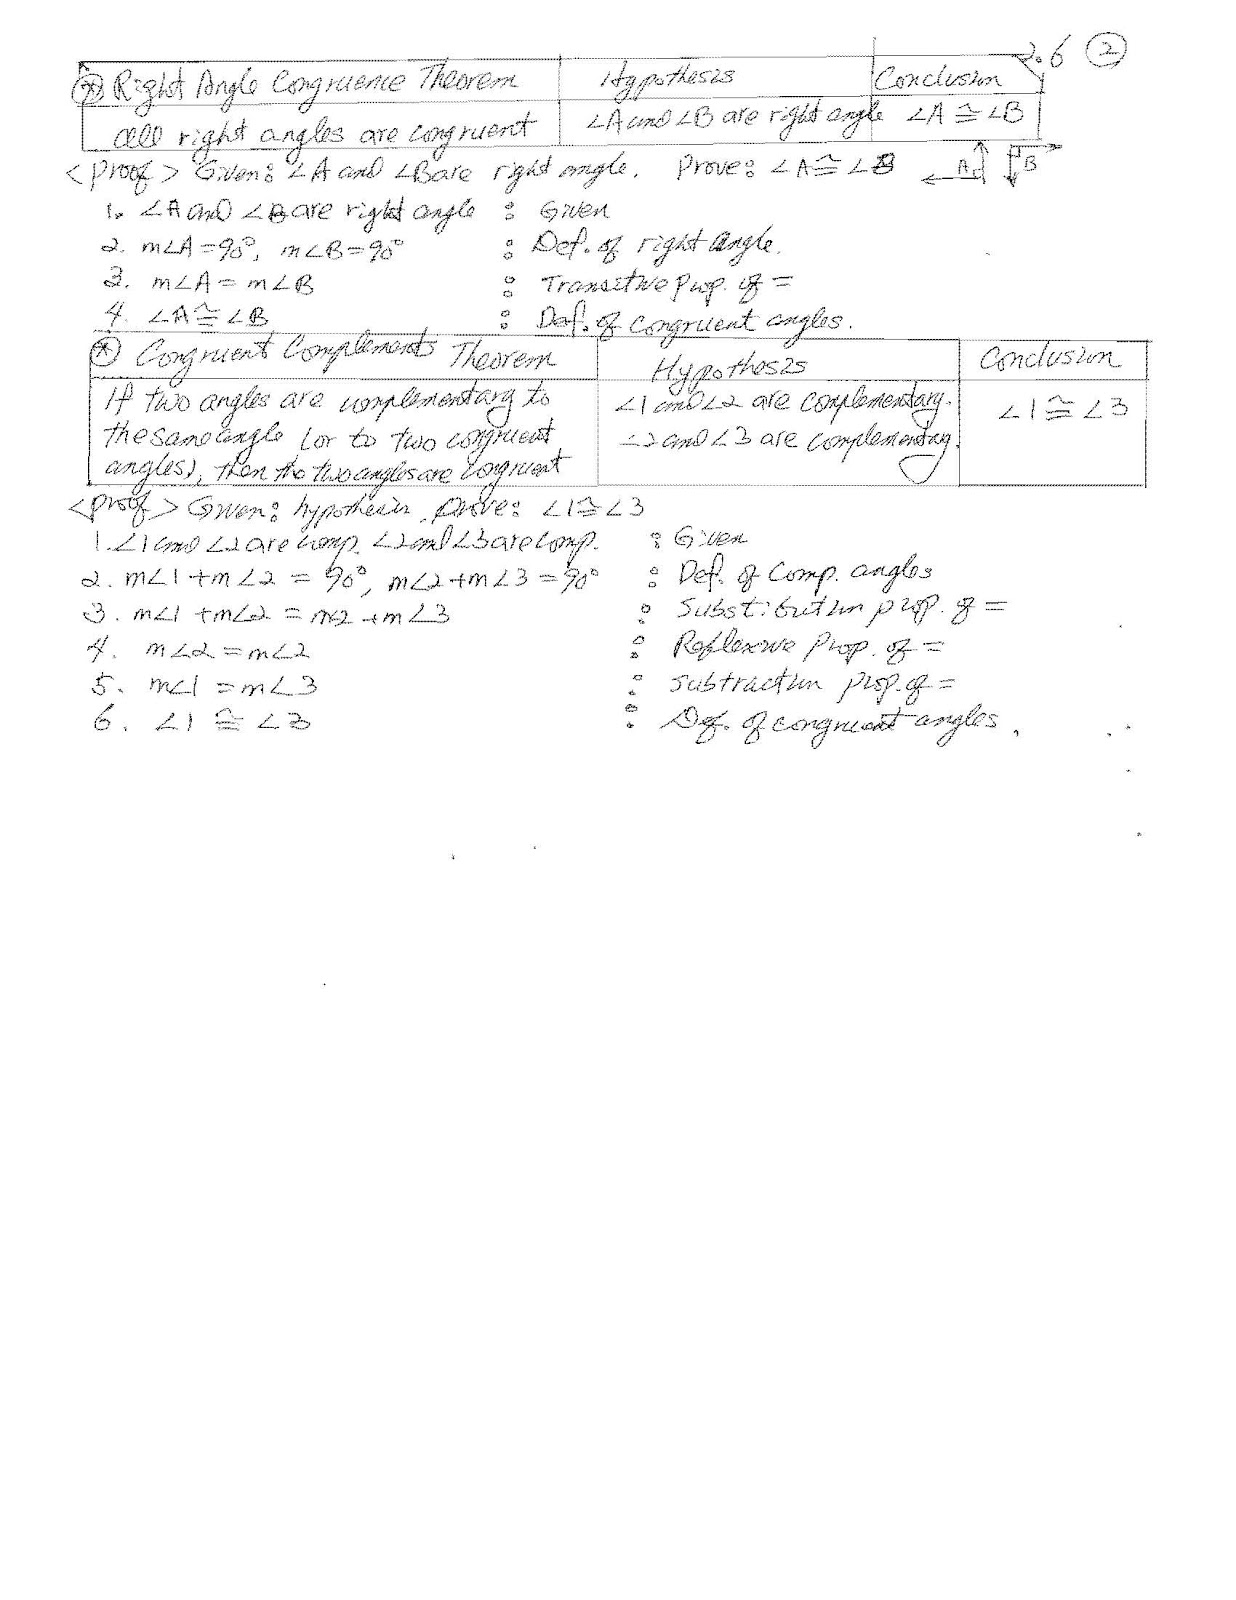 2.6 ②
⊛ Right Angle Congruence Theorem Hypothesis Conclusion
All right angles are congruent ∠A and ∠B are right angle ∠A ≅ ∠B
<proof> Given: ∠A and ∠B are right angle. Prove: ∠A ≅ ∠B A B
1. ∠A and ∠B are right angle : Given
2. m∠A = 90°, m∠B = 90° : Def. of right angle.
3. m∠A = m∠B : Transitive prop. of =
4. ∠A ≅ ∠B : Def. of congruent angles.
⊛ Congruent Complements Theorem Hypothesis Conclusion
If two angles are complementary to ∠1 and ∠2 are complementary. ∠1 ≅ ∠3
the same angle (or to two congruent ∠2 and ∠3 are complementary.
angles), then the two angles are congruent
<proof> Given: hypothesis. Prove: ∠1 ≅ ∠3
1. ∠1 and ∠2 are comp. ∠2 and ∠3 are comp. : Given
2. m∠1 + m∠2 = 90°, m∠2 + m∠3 = 90° : Def. of Comp. angles
3. m∠1 + m∠2 = m2 + m∠3 : Substitution prop. of =
4. m∠2 = m∠2 : Reflexive Prop. of =
5. m∠1 = m∠3 : Subtraction prop. of =
6. ∠1 ≅ ∠3 : Def. of congruent angles.